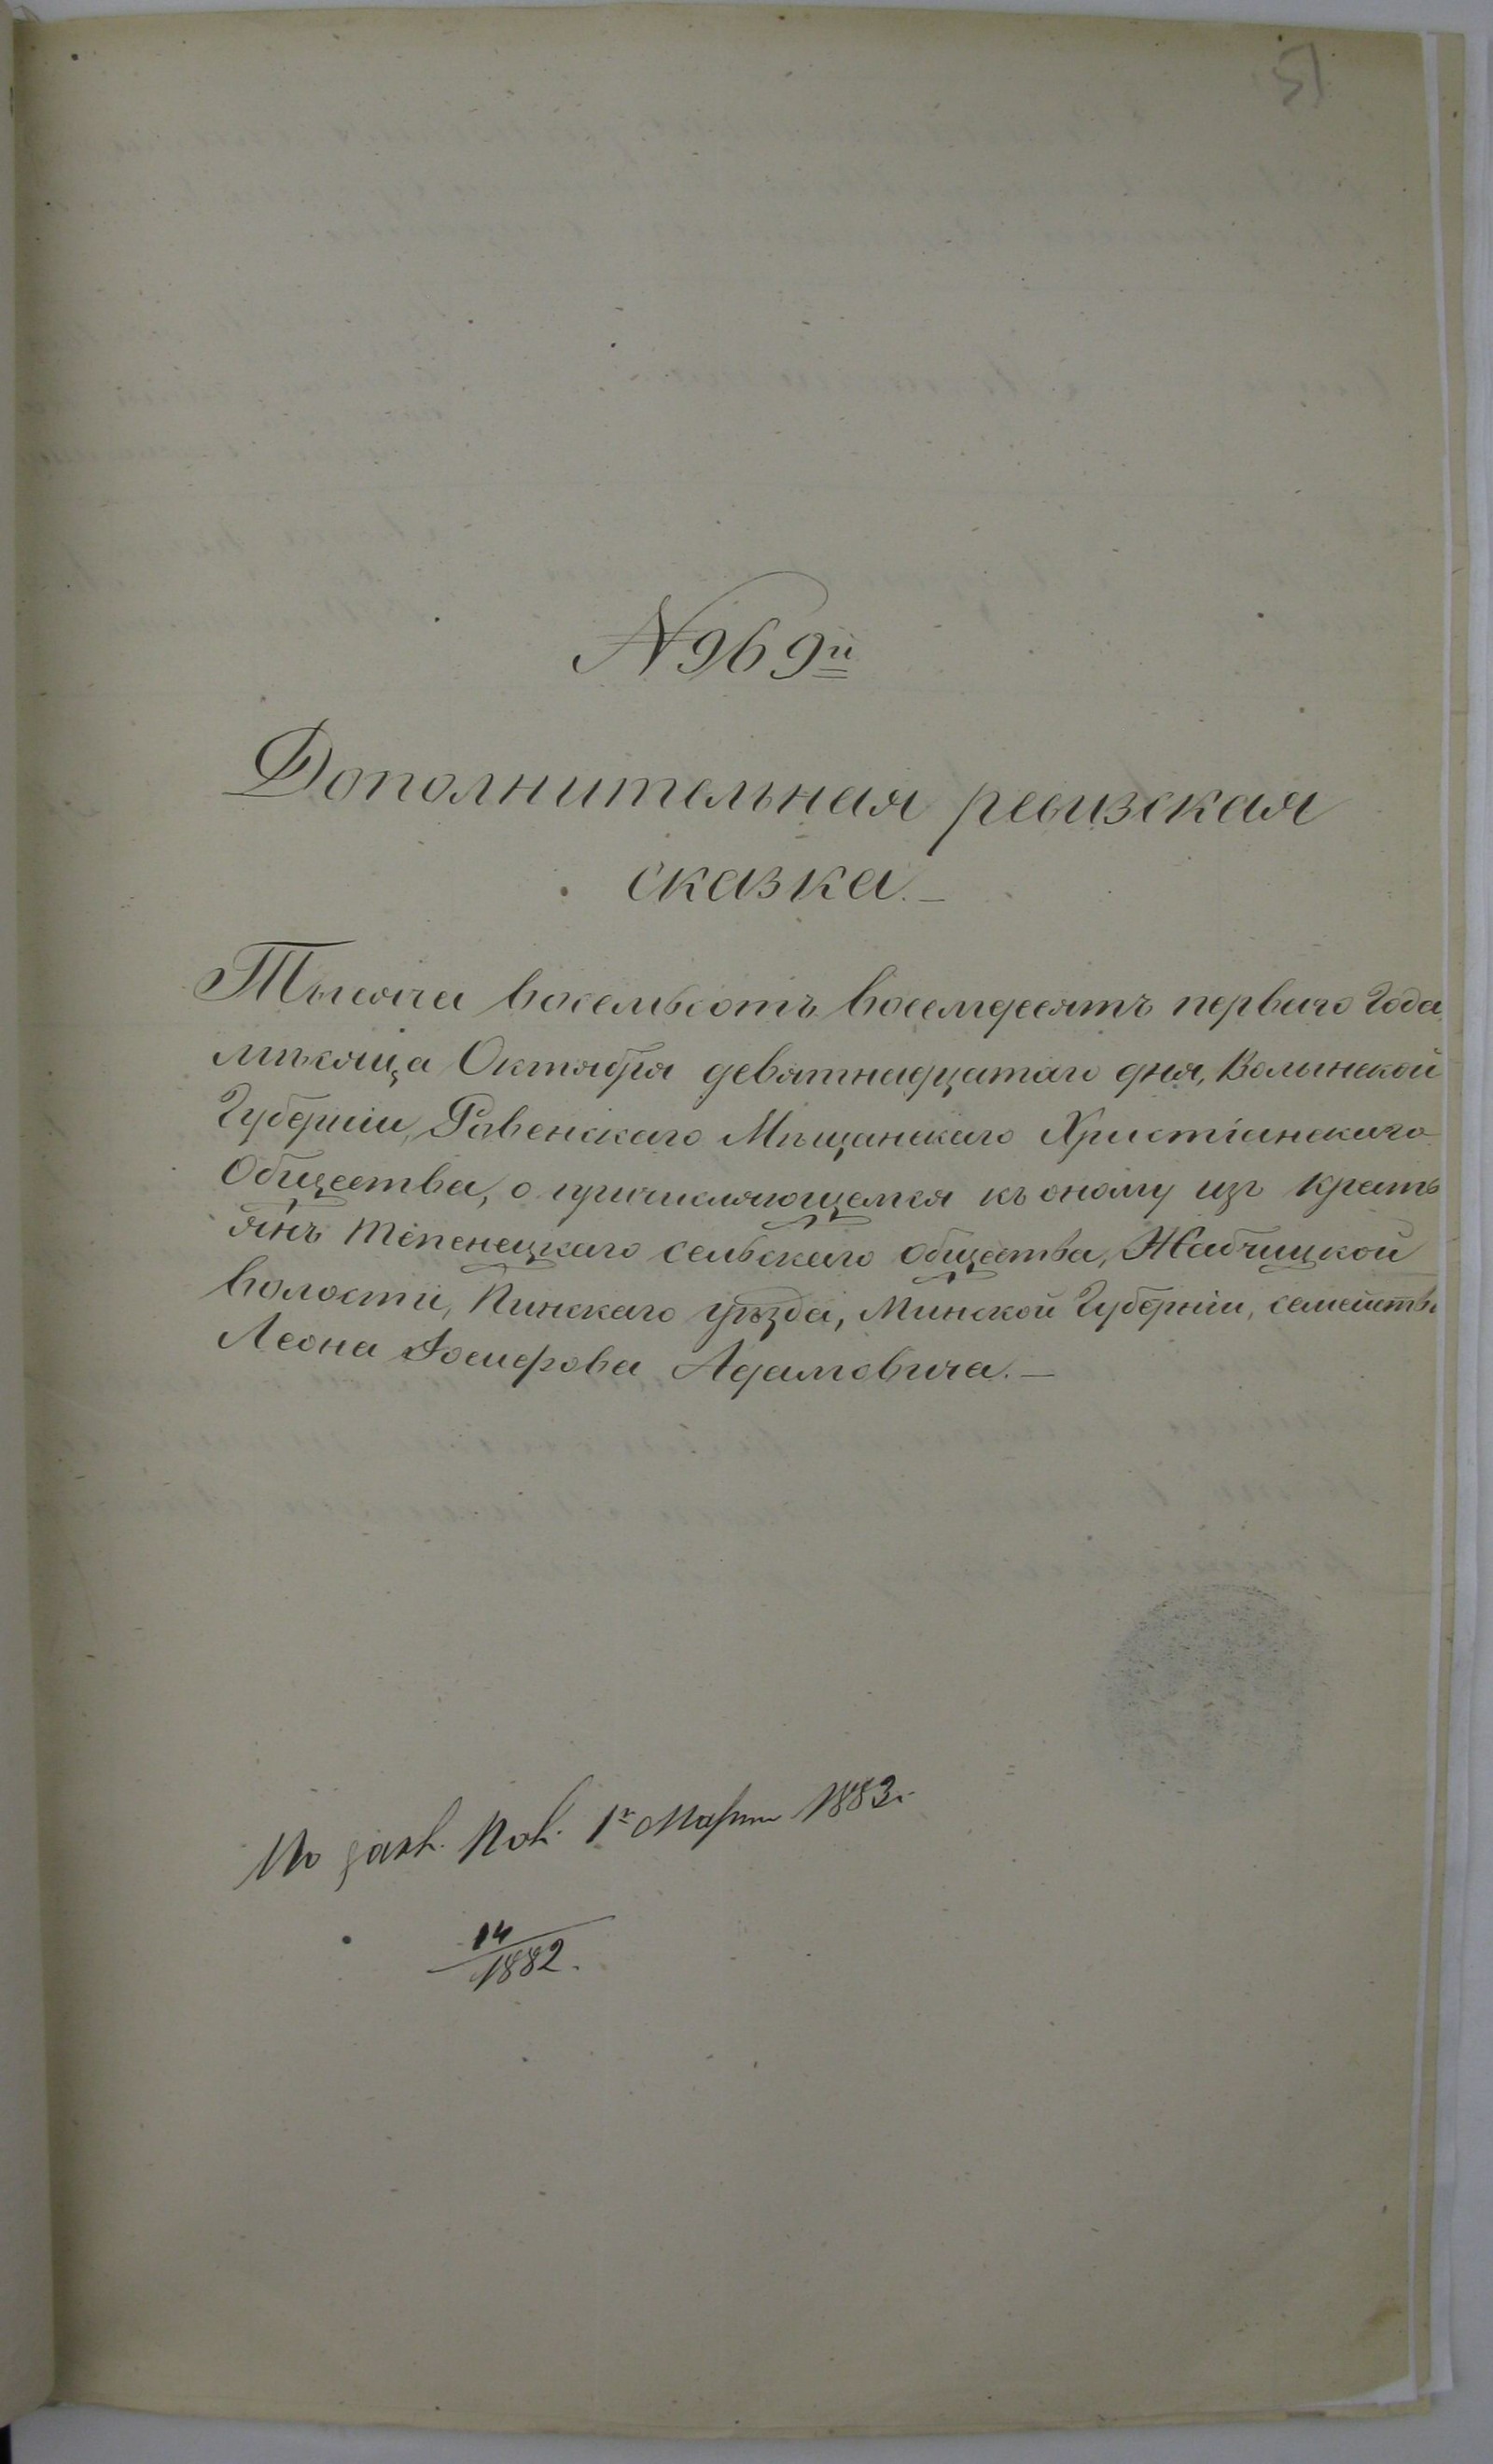 51
№ 969й
Дополнительная ревизская
сказка.—
Тысяча восемьсотъ восемдесятъ перваго Года
мѣсяца Октября девятнадцатаго дня, Волынской
Губерніи, Ровенскаго Мѣщанскаго Христіанскаго
Общества, о причисляющемся къ оному изъ кресть
янъ Тепенецкаго сельскаго общества, Жабчицкой
волости, Пинскаго уѣзда, Минской Губерніи, семейства
Леона Адамовича.—
По 1го Марта 1883.
14
1882.